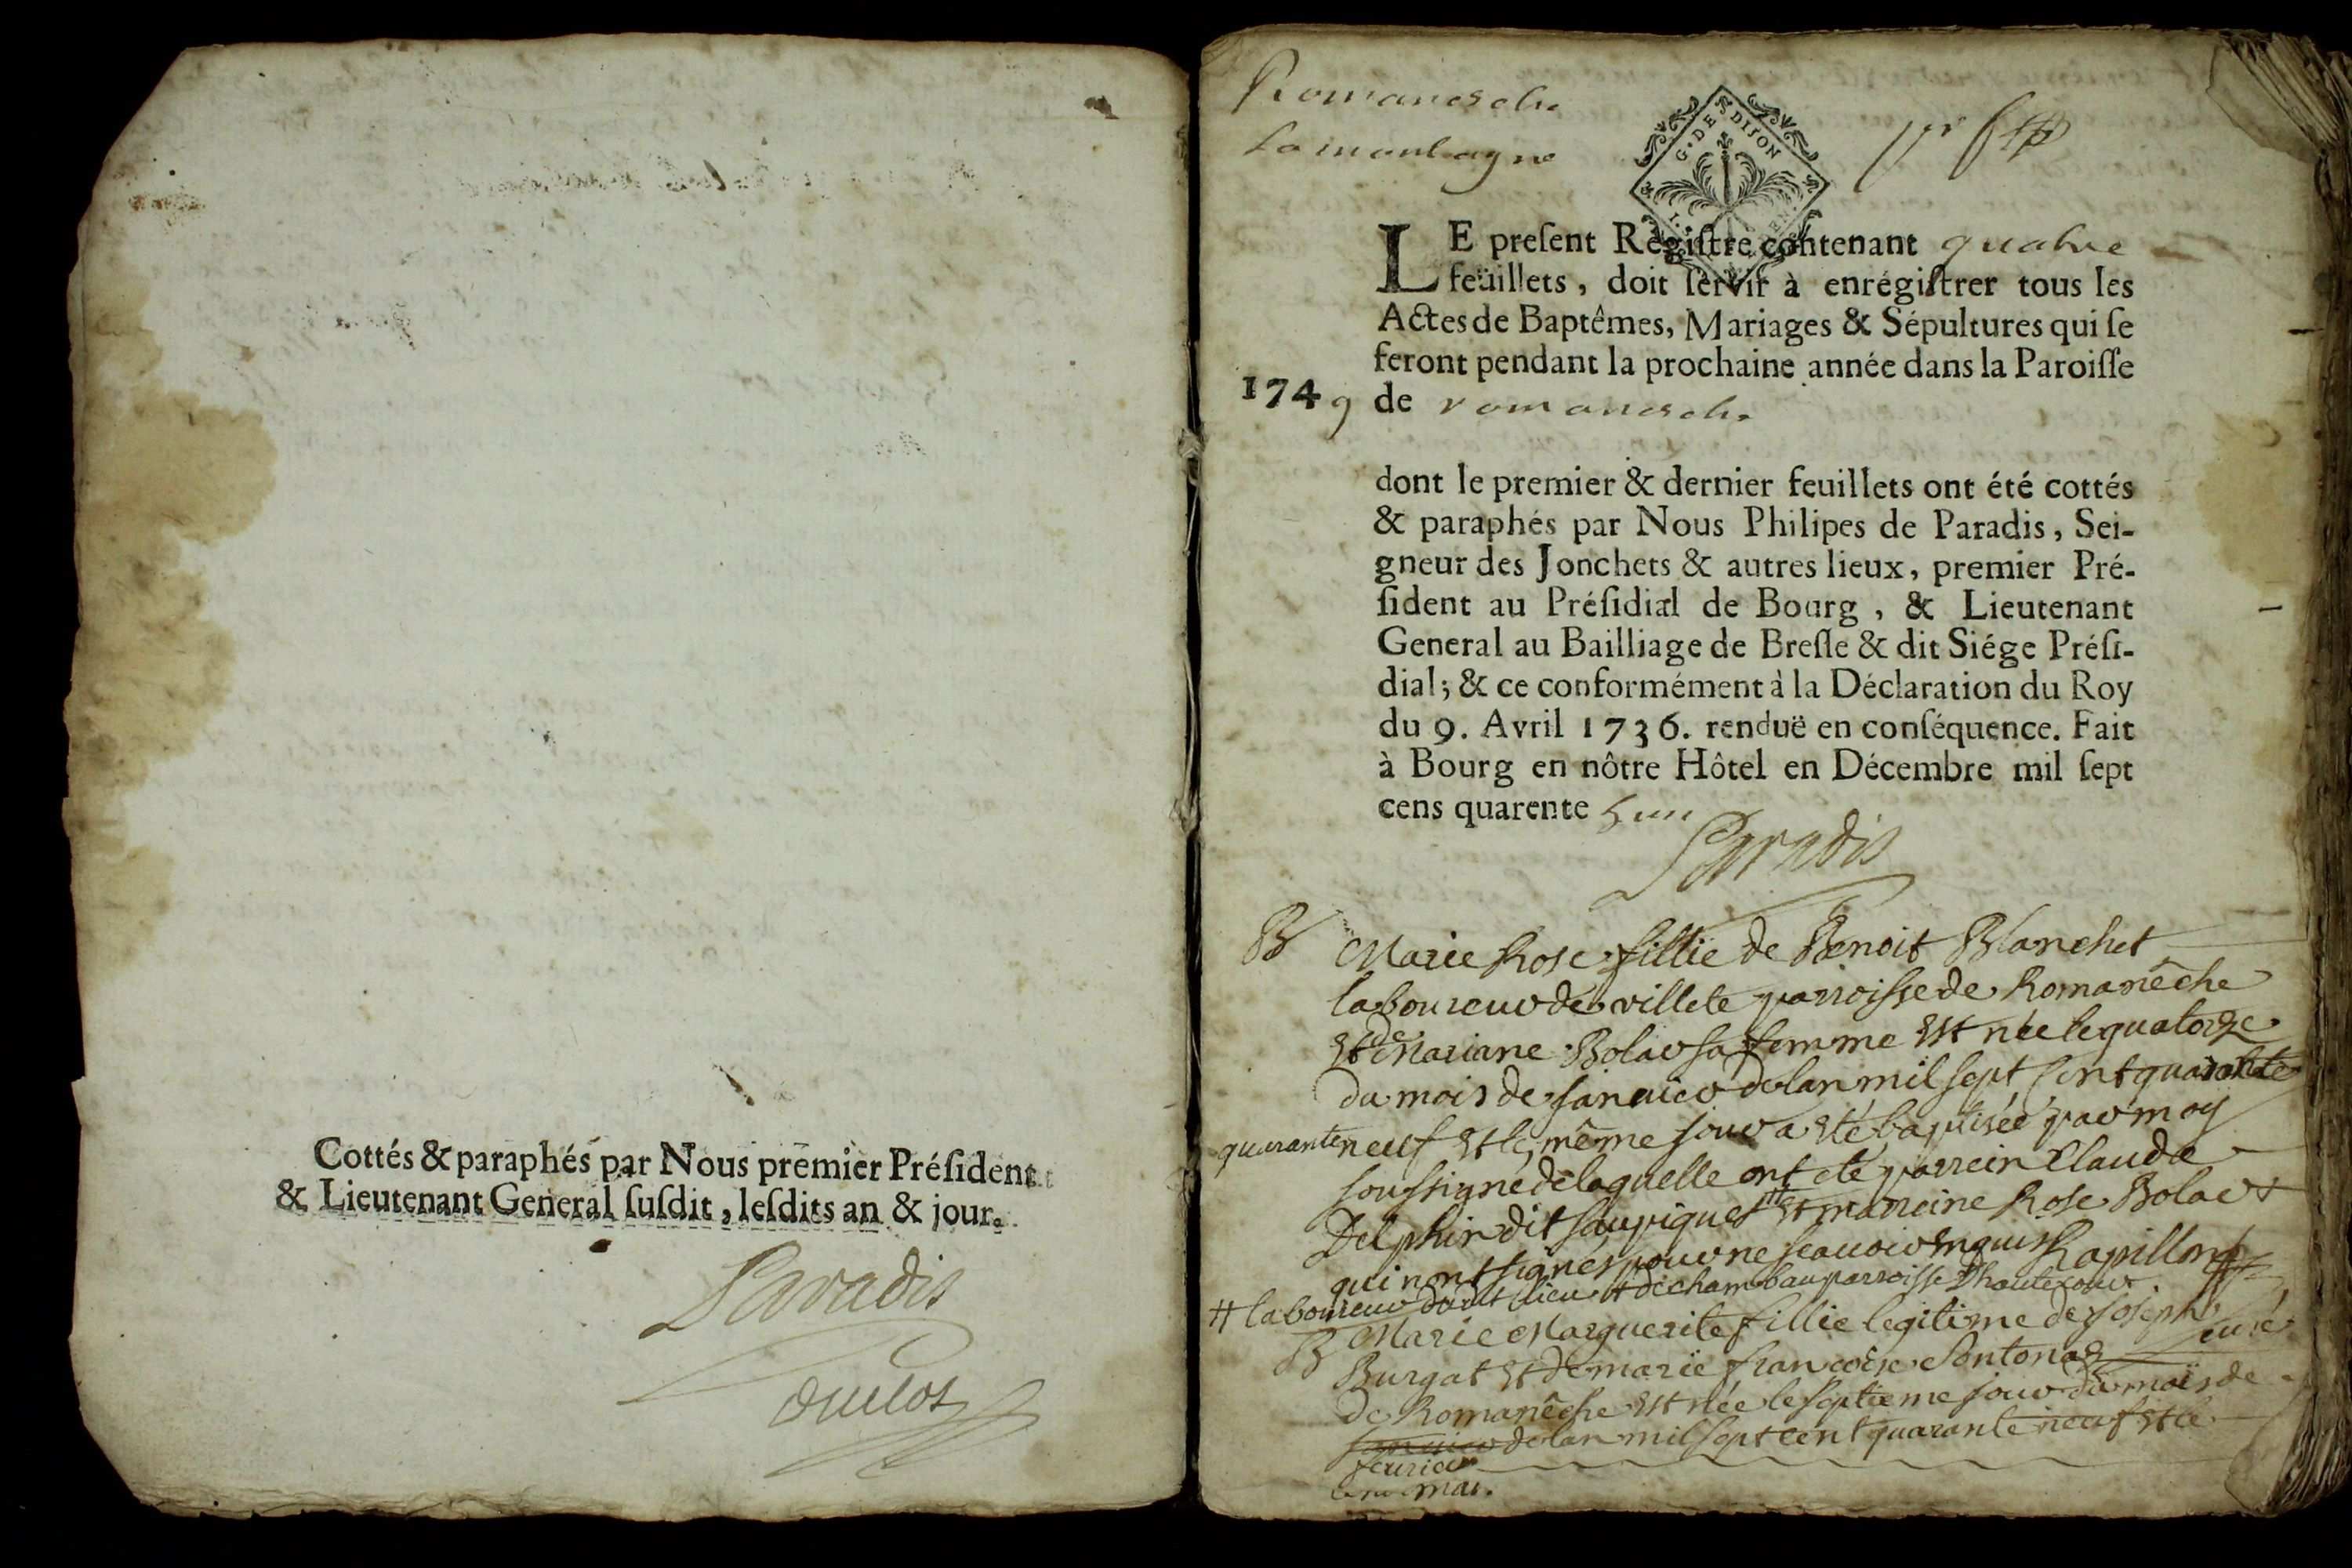 Cottés & paraphés par Nous premier Préſident
& Lieutenant General ſuſdit, leſdits an & jour.
Paradis
Duclos
Romanesche
La montagne
G. DE DIJON
LE preſent Régiſtre contenant quatre
feüillets, doit ſervir à enrégiſtrer tous les
Actes de Baptêmes, Mariages & Sépultures qui ſe
feront pendant la prochaine année dans la Paroiſſe
1749 de romanesche
dont le premier & dernier feuillets ont été cottés
& paraphés par Nous Philipes de Paradis, Sei-
gneur des Jonchets & autres lieux, premier Pré-
ſident au Préſidial de Bourg, & Lieutenant
General au Bailliage de Breſſe & dit Siége Préſi-
dial; & ce conformément à la Déclaration du Roy
du 9. Avril 1736. renduë en conſéquence. Fait
à Bourg en nôtre Hôtel en Décembre mil ſept
cens quarente
Paradis
B Marie Rose fillie de Benoit Blanchet
laboureur de villete parroisse de Romanêche
et de Mariane Bolar sa femme est née le quatorze
du mois de janvier de lan mil sept cent quarante
quarante neuf et le même jour a eté baptisée par moy
soussigné de laquelle ont eté parrein Claude
Delphin dit # et marreine Rose Bolar
qui nont signés pour ne scavoir enquis Rapillon
# laboureur dudit lieu et de chambau parroisse Dhautecour
curé
B Marie Marguerite fillie legitime de joseph
Burgat et de marie francoise Sontonas
de Romanêche est née le septieme jour du mois de
janvier de lan mil sept cent quarante neuf et le
fevrier
mai.